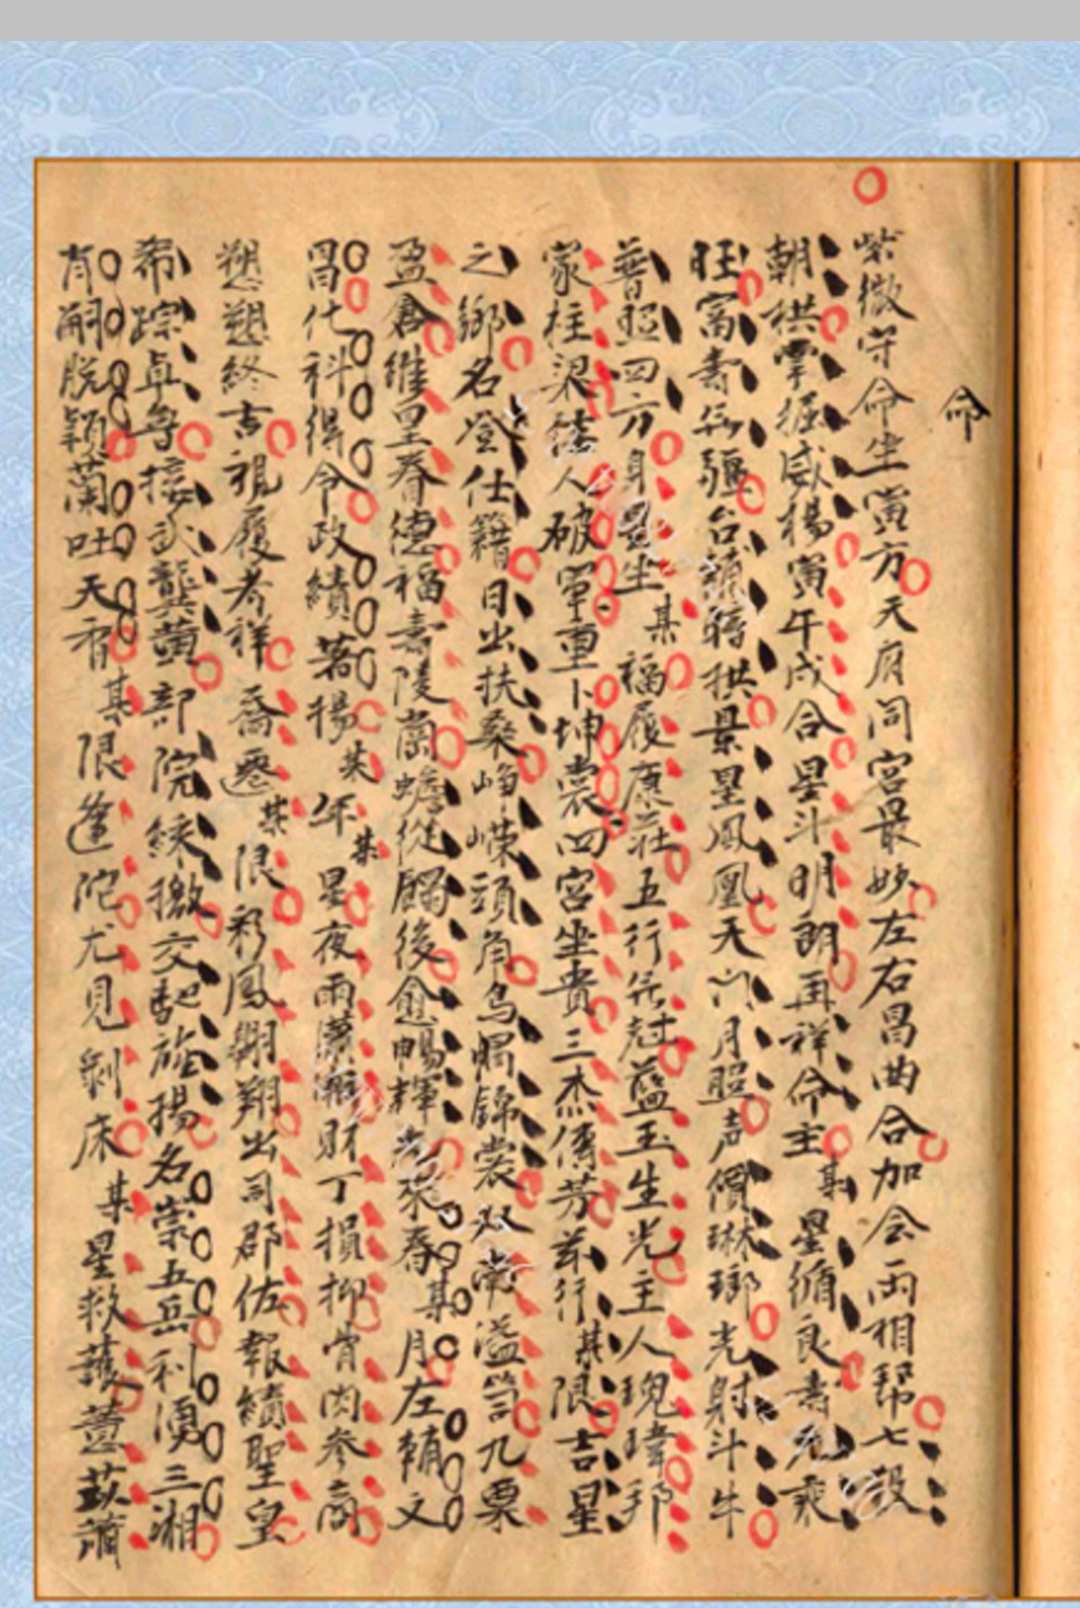 命
紫微守命坐寅方天府同宮最妙左右昌曲合加会両相幫七殺
朝拱掌握威揚寅午戌合星斗明朗再祥命主某星循良壽元爽
旺富壽無疆台輔將拱景星鳳凰天門月照声價琳瑯光射斗牛
普照四方身星坐某福履康莊五行無尅藍玉生光主人瑰瑋邦
家柱梁人破軍重卜坤裳四宮坐貴三杰傳芳并行某限吉星
之鄉名登仕籍日出扶桑崢嶸頭角烏幞錦裳双南溢笥九粟
盈倉維呈春德福壽陵蘭蟾從麟後愈暢輝光來春某月左輔文
昌化科得令政績著揚某年某星夜雨瀟瀟財丁損抑骨肉参商
愬愬終吉視履考祥喬遷某限彩鳳翱翔出司郡佐報績聖皇
希踪卓魯接武龔黃部院綵檄交馳旌揚名崇五岳利湧三湘
有嗣脱穎蘭吐天香某限逢陀尤見剝床某星救護薏苡謂